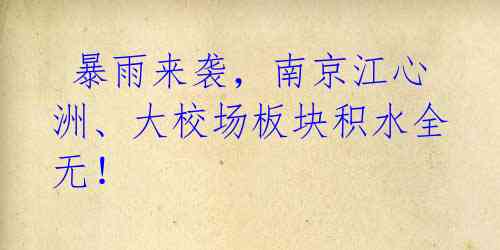 暴雨来袭，南京江心
洲、大校场板块积水全
无！